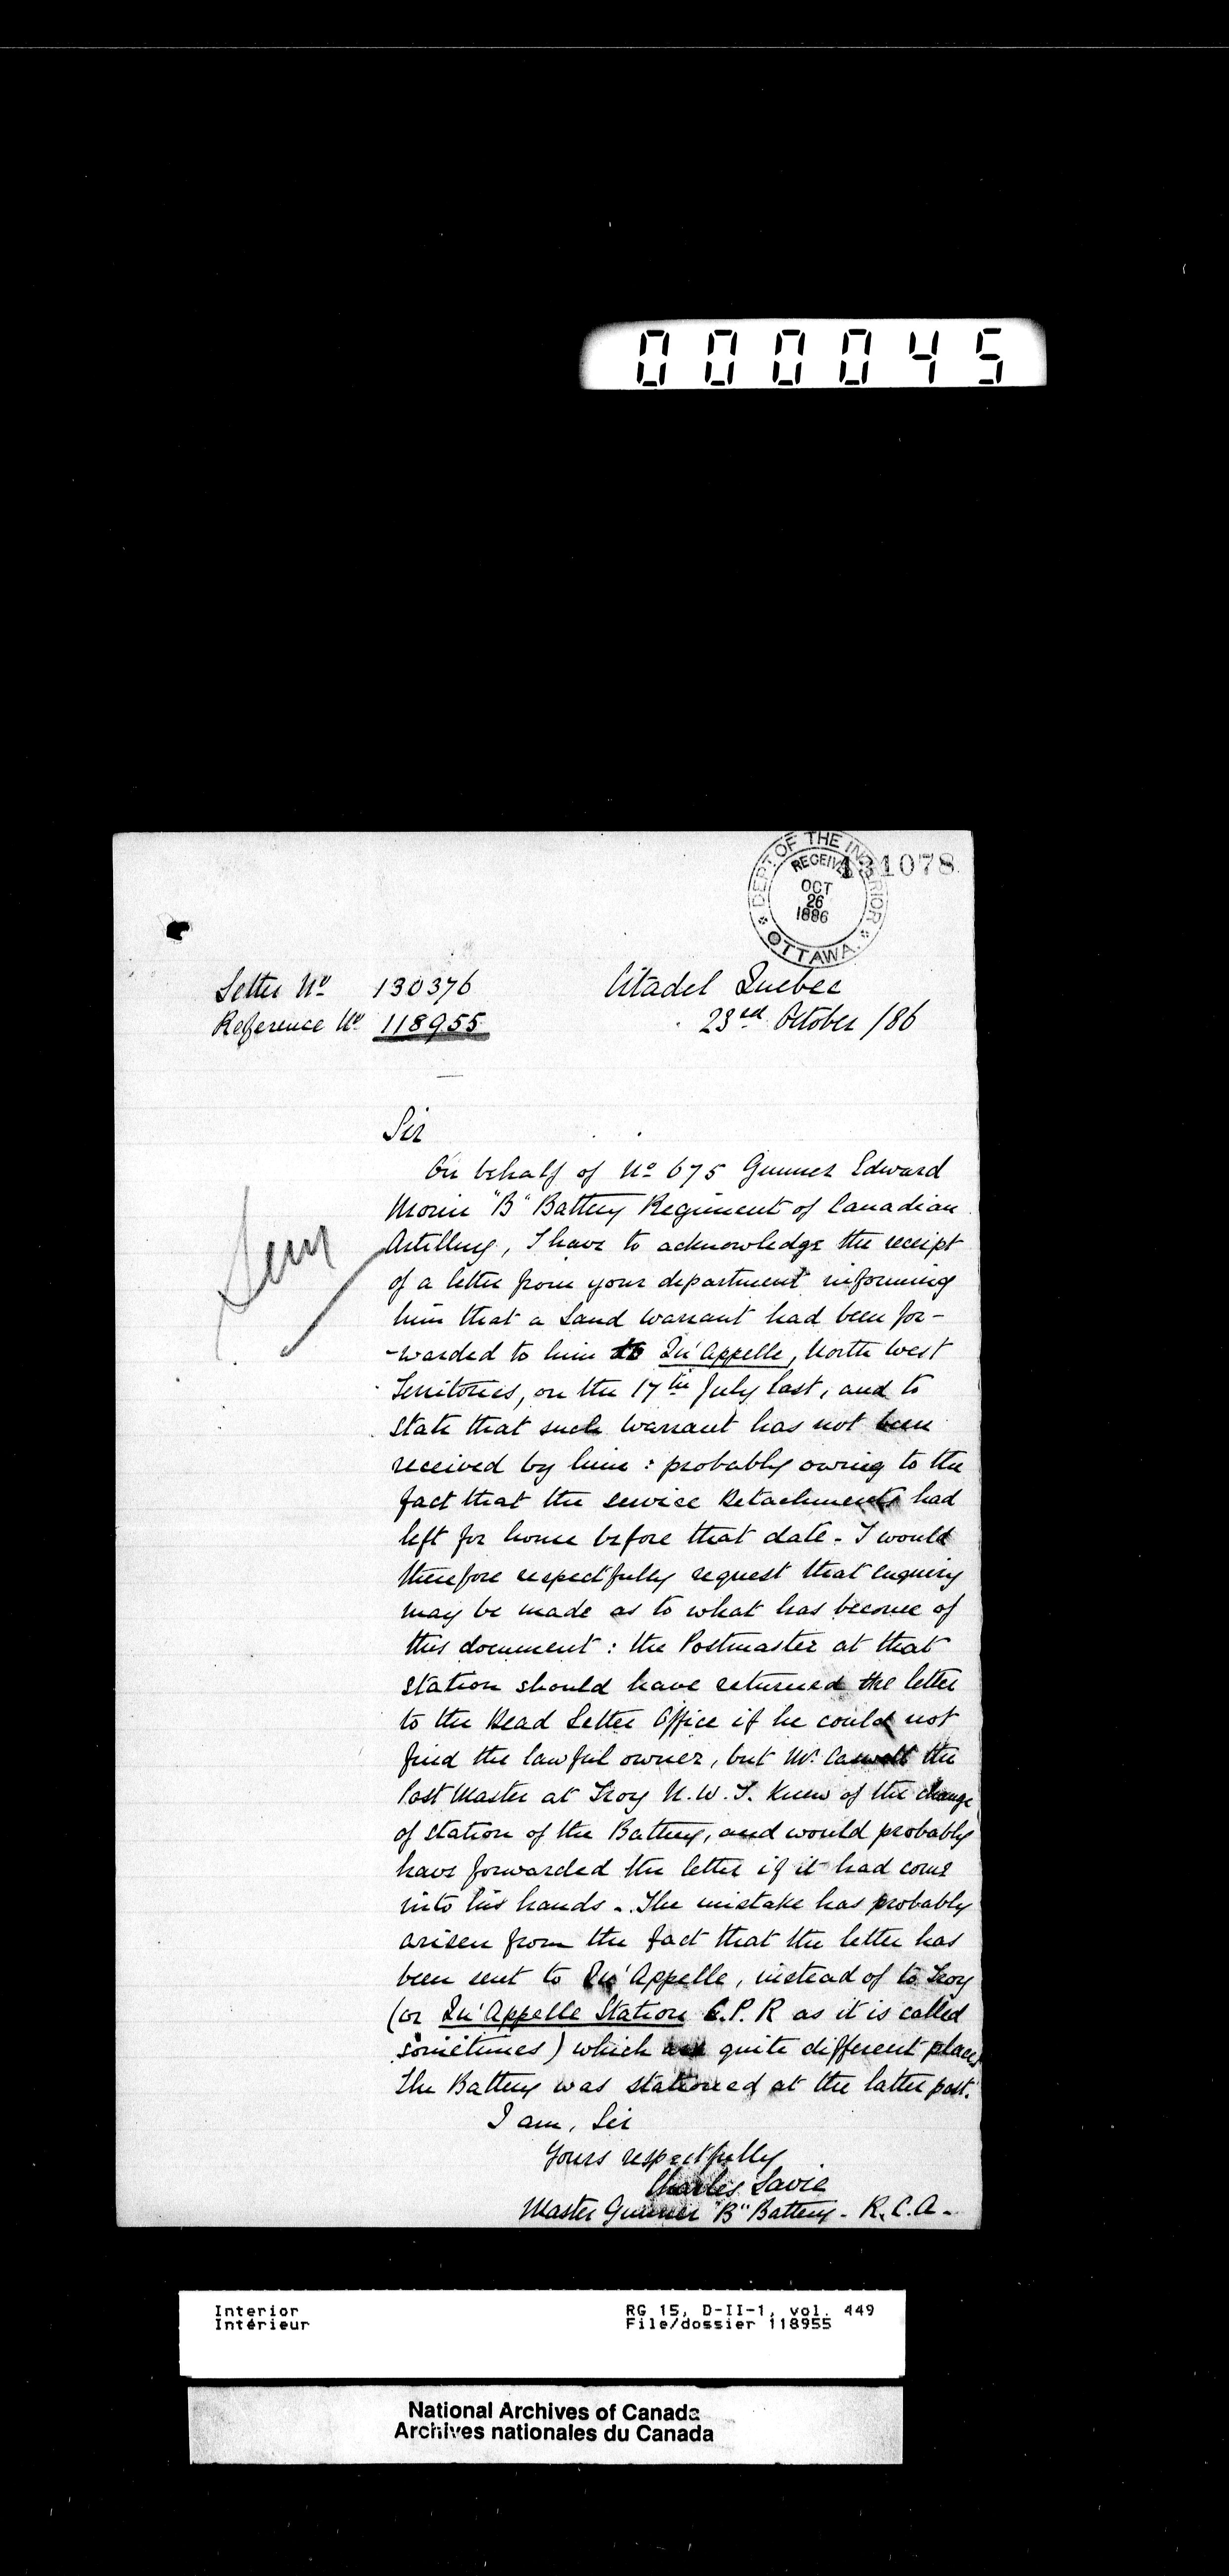 000045
DEPT OF THE INTERIOR
RECEIVED
OCT
26
1886
OTTAWA
131078
Letter No 130376
Citadel Quebec
Reference No 118955
23rd October /86
Sir
On behalf of No 675 Gunner Edward
Morin "B" Battery Regiment of Canadian
Artillery, I have to acknowledge the receipt
of a letter from your department informing
him that a Land Warrant had been for-
-warded to him to Qu'Appelle, North West
Territories, on the 17th July last, and to
state that such Warrant has not been
received by him : probably owing to the
fact that the service Detachments had
left for home before that date - I would
therefore respectfully request that enquiry
may be made as to what has become of
this document : the Postmaster at that
station should have returned the letter
to the Dead Letter Office if he could not
find the lawful owner, but Mr Caswell the
Post Master at Troy N.W.T. knew of the change
of station of the Battery, and would probably
have forwarded the letter if it had come
into his hands -. The mistake has probably
arisen from the fact that the letter has
been sent to Qu'Appelle, instead of to Troy
(or Qu'Appelle Station C.P.R as it is called
sometimes) which are quite different places
The Battery was stationed at the latter post.
I am, Sir
Yours respectfully
Charles Lavie
Master Gunner "B" Battery - R.C.A -
Interior
Intérieur
RG 15, D-II-1, vol. 449
File/dossier 118955
National Archives of Canada
Archives nationales du Canada